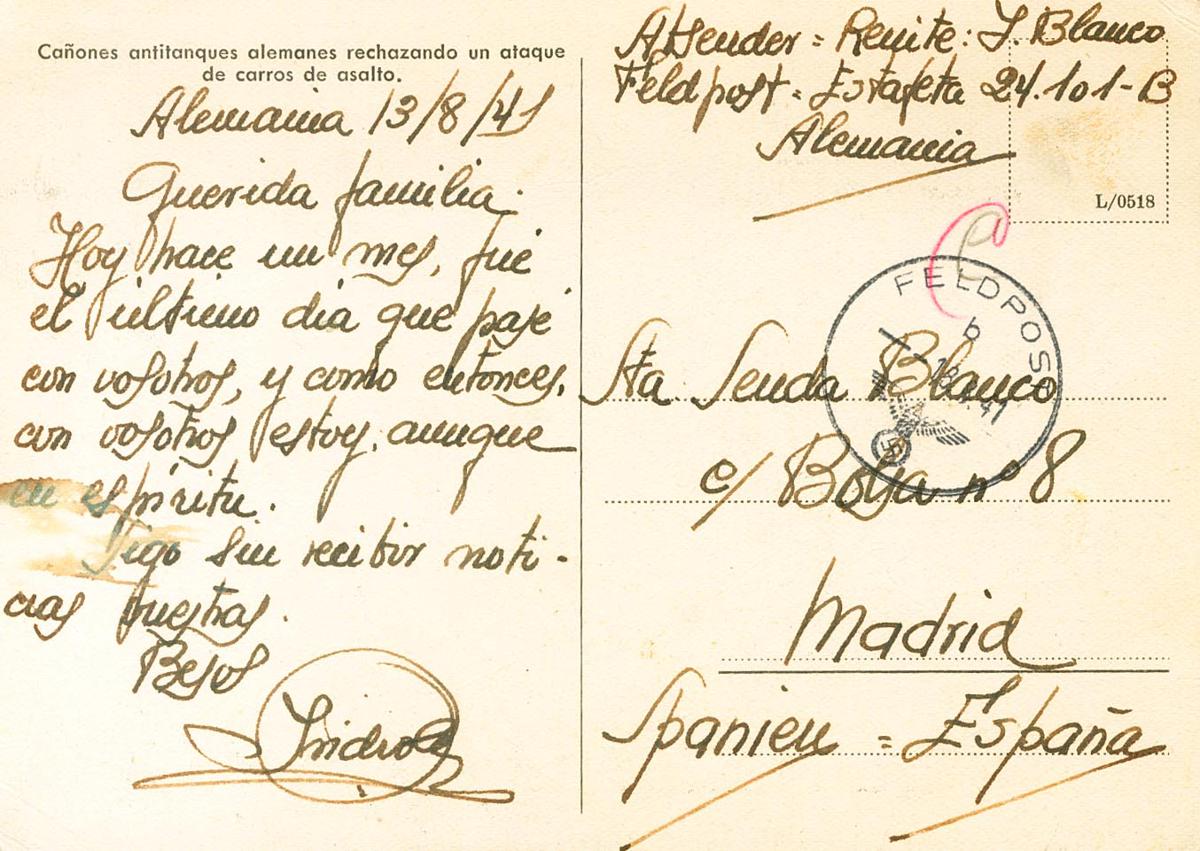 Cañones antitanques alemanes rechazando un ataque
de carros de asalto.
Alemania 13/8/41
Querida familia:
Hoy hace un mes, fué
el último día que pasé
con vosotros, y como entonces,
con vosotros estoy, aunque
en espíritu.
Sigo sin recibir noti-
cias vuestras.
Besos
Isidro
Absender = Remite: I. Blanco
Feldpost = Estafeta 24.101-B
Alemania
L/0518
FELDPOST
b
41
Sta Senda Blanco
c/ Boya nº 8
Madrid
Spanien = España